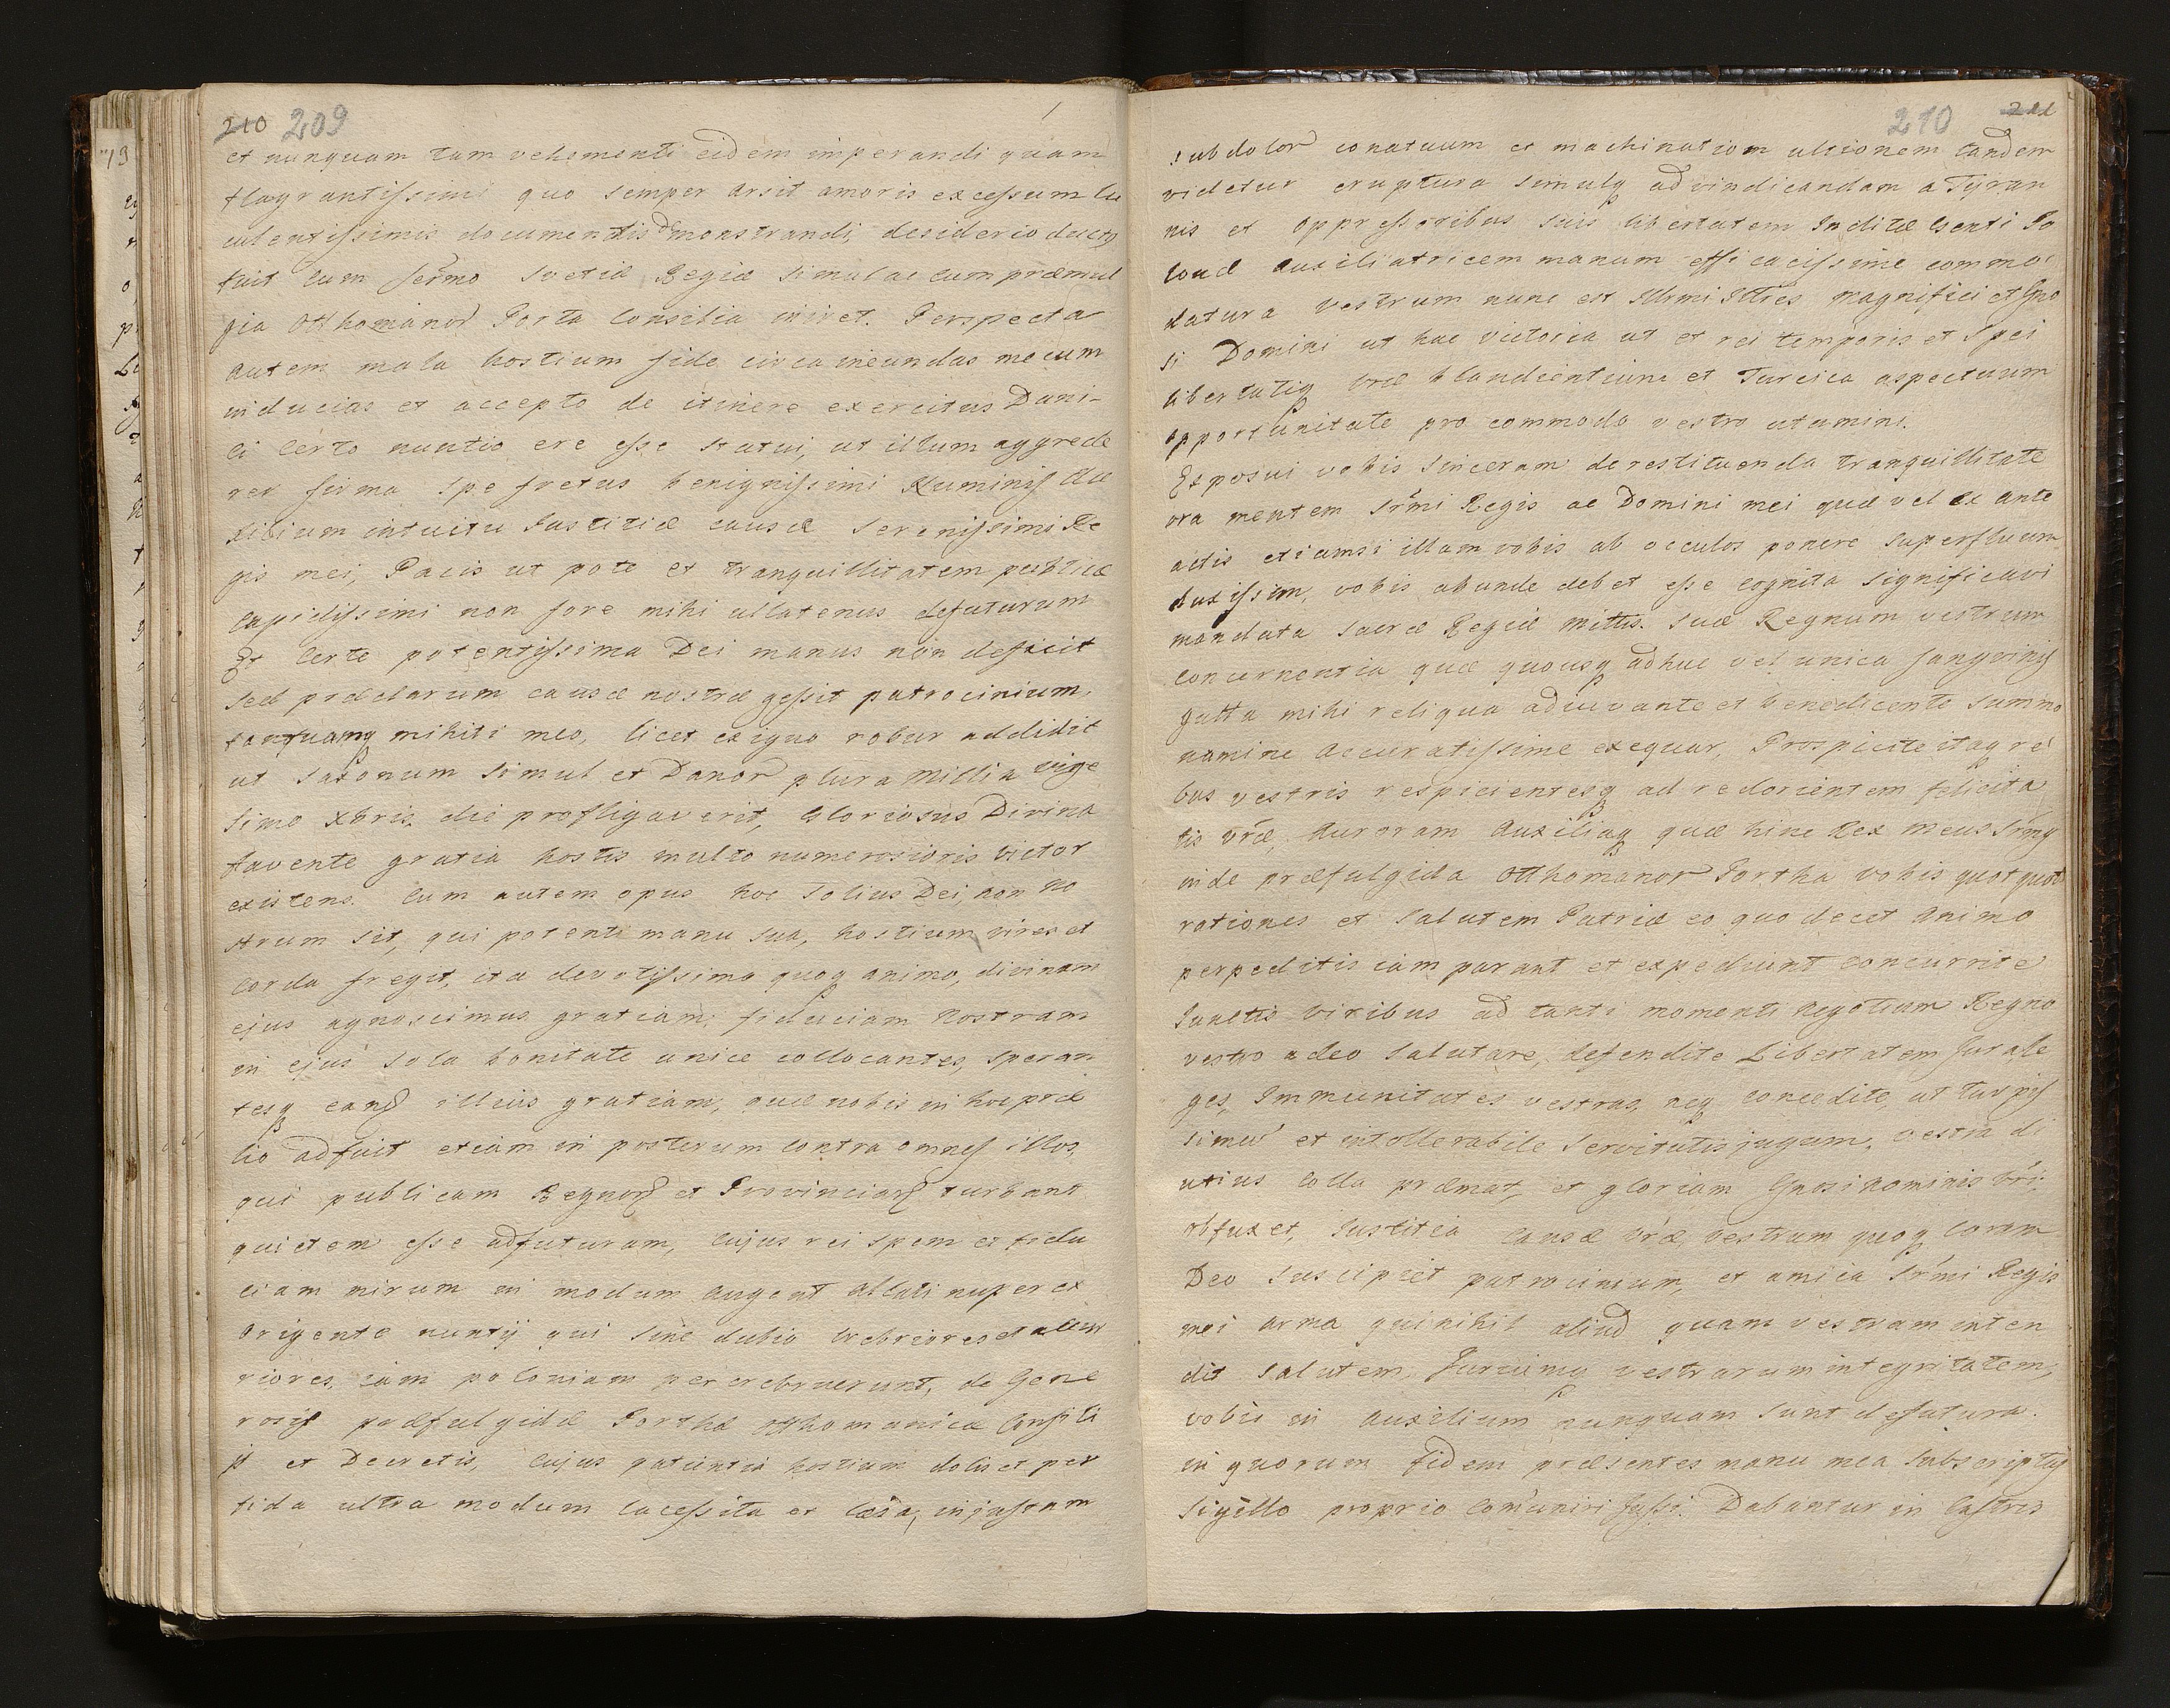 210 209
et nunquam tam vehementi eidem imperandi quam
flagrantissimi quo semper arsit amoris excessum lu
culentissimis documentis demonstrandi, desiderio ductus
fuit cum sermo Svetiæ Regiæ simul ac cum præmul
gia Otthomanor Porta Consilia iniret. Perspecta
autem mala hostium fide circa ineundas mecum
inducias et accepto de itinere exercitus Dani-
ci certo nuntio ere esse statui, ut illum aggrede
rer firma spe fretus benignissimi Numinis Au
xilium intuitu Iustitiæ causæ Serenissimi Re
gis mei, Pacis ut pote et tranquillitatem publicæ
cupidissimi non fore mihi ullatenus defuturum
Et certe potentissima Dei manus non deficit
sed præclarum causæ nostræ gessit patrocinium,
tantumq militi meo, licet exiguo robur addidit
ut Saxonum simul et Danor plura Millia vige
simo Xbris die profligaverit, Gloriosus Divina
favente gratia hostis multo numerosioris victor
existens. Cum autem opus hoc Solius Dei, non No
strum sit, qui potenti manu sua, hostium vires et
corda fregit, ita devotissimo quoq animo, divinam
ejus agnoscimus gratiam, fiduciam Nostram
in ejus sola bonitate unice collocantes, speran
tesq eand illius gratiam, quæ nobis in hoc præ
lio adfuit etiam in posterum contra omnes illos,
qui publicam Regnor et Provinciar turbant
quietem esse adfuturam, cujus rei spem et fidu
ciam mirum in modum augent allati nuper ex
Origente nuntij qui sine dubio crebriores et alior
riores, iam poloniam percrebruerunt, de Gene
rosis præfulgidæ Porthæ otthomanicæ Consili
js et Decretis, cujus patientia hostium dolis et per
fida ultra modum lacessita et læsa, injustam
210 211
subdolor conatuum et machination ultionem tandem
videtur eruptura simulq ad vindicandam a Tyran
nis et oppressoribus suis libertatem Inclitæ Genti Po
lonæ auxiliatricem manum efficacissime commo
datura vestrum nunc est Illrmi Illres Magnifici et Gno
si Domini ut hac victoria ut et rei temporis et spei
libertatiq vræ blandientium et Turcica aspectuum
opportunitate pro commodo vestro utamini.
Exposui vobis sinceram de restituenda tranquillitate
vra mentem Srmi Regis ac Domini mei quæ vel ex ante
actis etiamsi illam vobis ob occulos ponere superfluum
duxissim, vobis abunde debet esse cognita significavi
mandata Sacræ Regiæ Mittis. suæ Regnum vestrum
concernentia quæ quousq adhuc vel unica sangvinis
gutta mihi reliqua adiuvante et benedicente summo
numine accuratissime exequar, Prospicite itaq re
bus vestris respicientesq ad redorientem felicita
tis vræ, Auroram Auxiliaq quæ hinc Rex meus Srmg
inde præfulgida Otthomanor Portha vobis quotquot
rationes et salutem Patriæ eo quo decet animo
perpeditis iam parant et expediunt concurrite
Iunctis viribus ad tanti momenti negotium Regno
vestro adeo salutare, defendite Libertatem Jura Le
ges, Immunitates vestras, neq concedite, ut turpis
simu et intollerabile Servitutis jugum, vestra di
utius colla præmat, et gloriam Gnosi Nominis vri
obfuxet, Iustitia causæ vræ, vestrum quoq coram
Deo suscipiet patrocinium, et amica Srmi Regis
mei arma qui nihil aliud quam vestram inten
dit salutem Juriumq vestrarum integritatem,
vobis in auxilium nunquam sunt defutura.
in quorum fidem præsentes manu mea subscriptas
sigillo proprio comuniri jussi. Dabantur in Castris